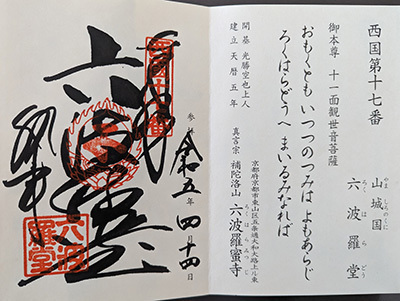 西国第十七番
やましろのくに
山城国
ろくはらどう
六波羅堂
御本尊 十一面観世音菩薩
おもくとも いつつのつみは よもあらじ
ろくはらどうへ まいるみなれば
開基 光勝空也上人
建立 天暦五年
京都府京都市東山区五条通大和大路上ル東
真言宗 補陀洛山 六波羅蜜寺
ふだらくさん ろくはらみつじ
令和五年四月十四日
奉拝
西国十七番
六波羅堂
六波羅堂